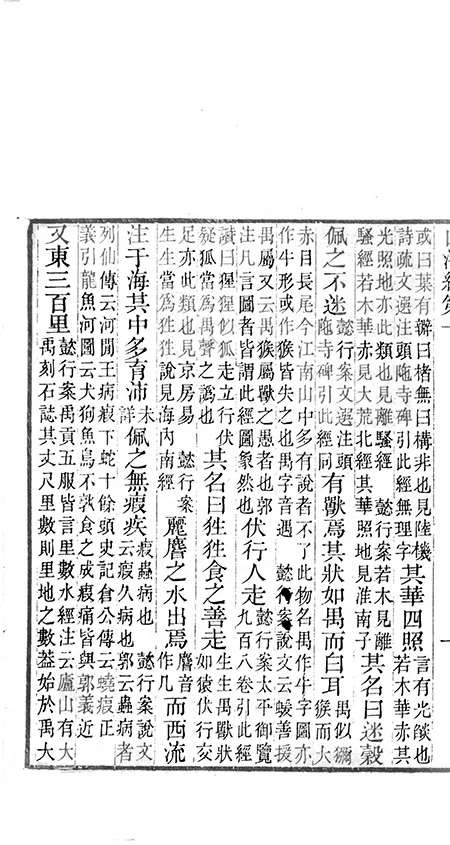 或曰葉有瓣曰楮無曰構非也見陸機
詩疏文選注頭陁寺碑引此經無理字
其華四照
言有光燄也
若木華赤其
光照地亦此類也見離騷經 懿行案若木見離
騷經若木華赤見大荒北經其華照地見淮南子
其名曰迷穀
佩之不迷
懿行案文選注頭
陁寺碑引此經同
有獸焉其狀如禺而白耳
禺似獼
猴而大
赤目長尾今江南山中多有說者不了此物名禺作牛字圖亦
作牛形或作猴皆失之也禺字音遇 懿行案說文云蝯善援
禺屬又云禺猴屬獸之愚者也郭
注凡言圖者皆謂此經圖象然也
伏行人走
懿行案太平御覽
九百八卷引此經
讖曰猩猩似狐走立行伏
疑狐當為禺聲之譌也
其名曰狌狌食之善走
生生禺獸狀
如猿伏行交
足亦此類也見京房易 懿行案
生生當為狌狌說見海內南經
麗𪊨之水出焉
𪊨音
作几
而西流
注于海其中多育沛
未
詳
佩之無瘕疾
瘕蟲病也 懿行案說文
云瘕久病也郭云蟲病者
列仙傳云河閒王病瘕下蛇十餘頭史記倉公傳云蟯瘕正
義引龍魚河圖云犬狗魚鳥不孰食之成瘕痛皆與郭義近
又東三百里
懿行案禹貢五服皆言里數水經注云廬山有大
禹刻石誌其丈尺里數則里地之數葢始於禹大